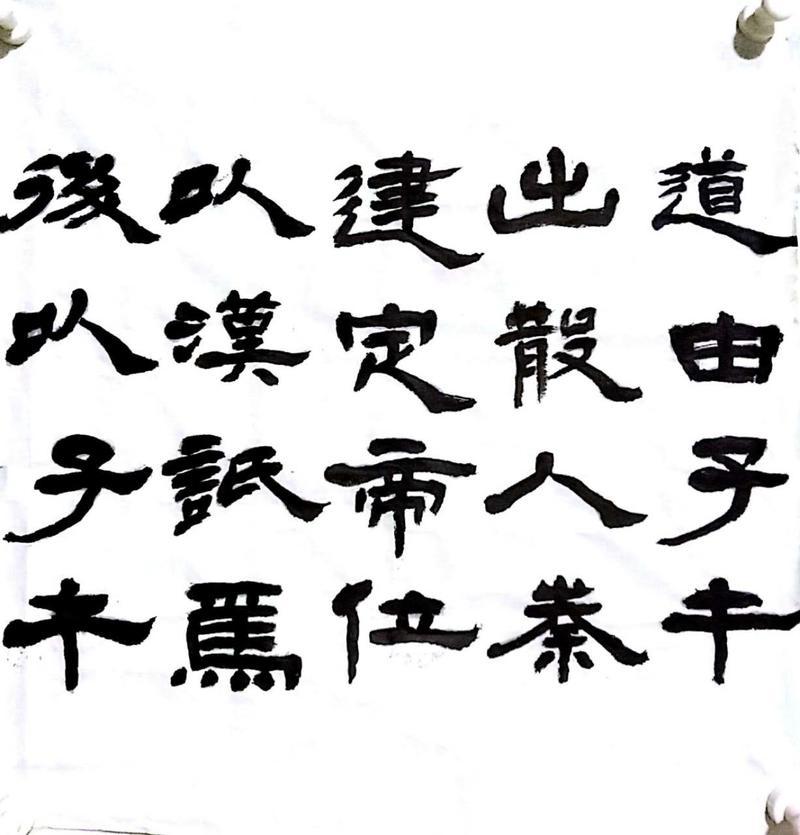 道由子午
出散入秦
建定帝位
以漢詆焉
後以子午